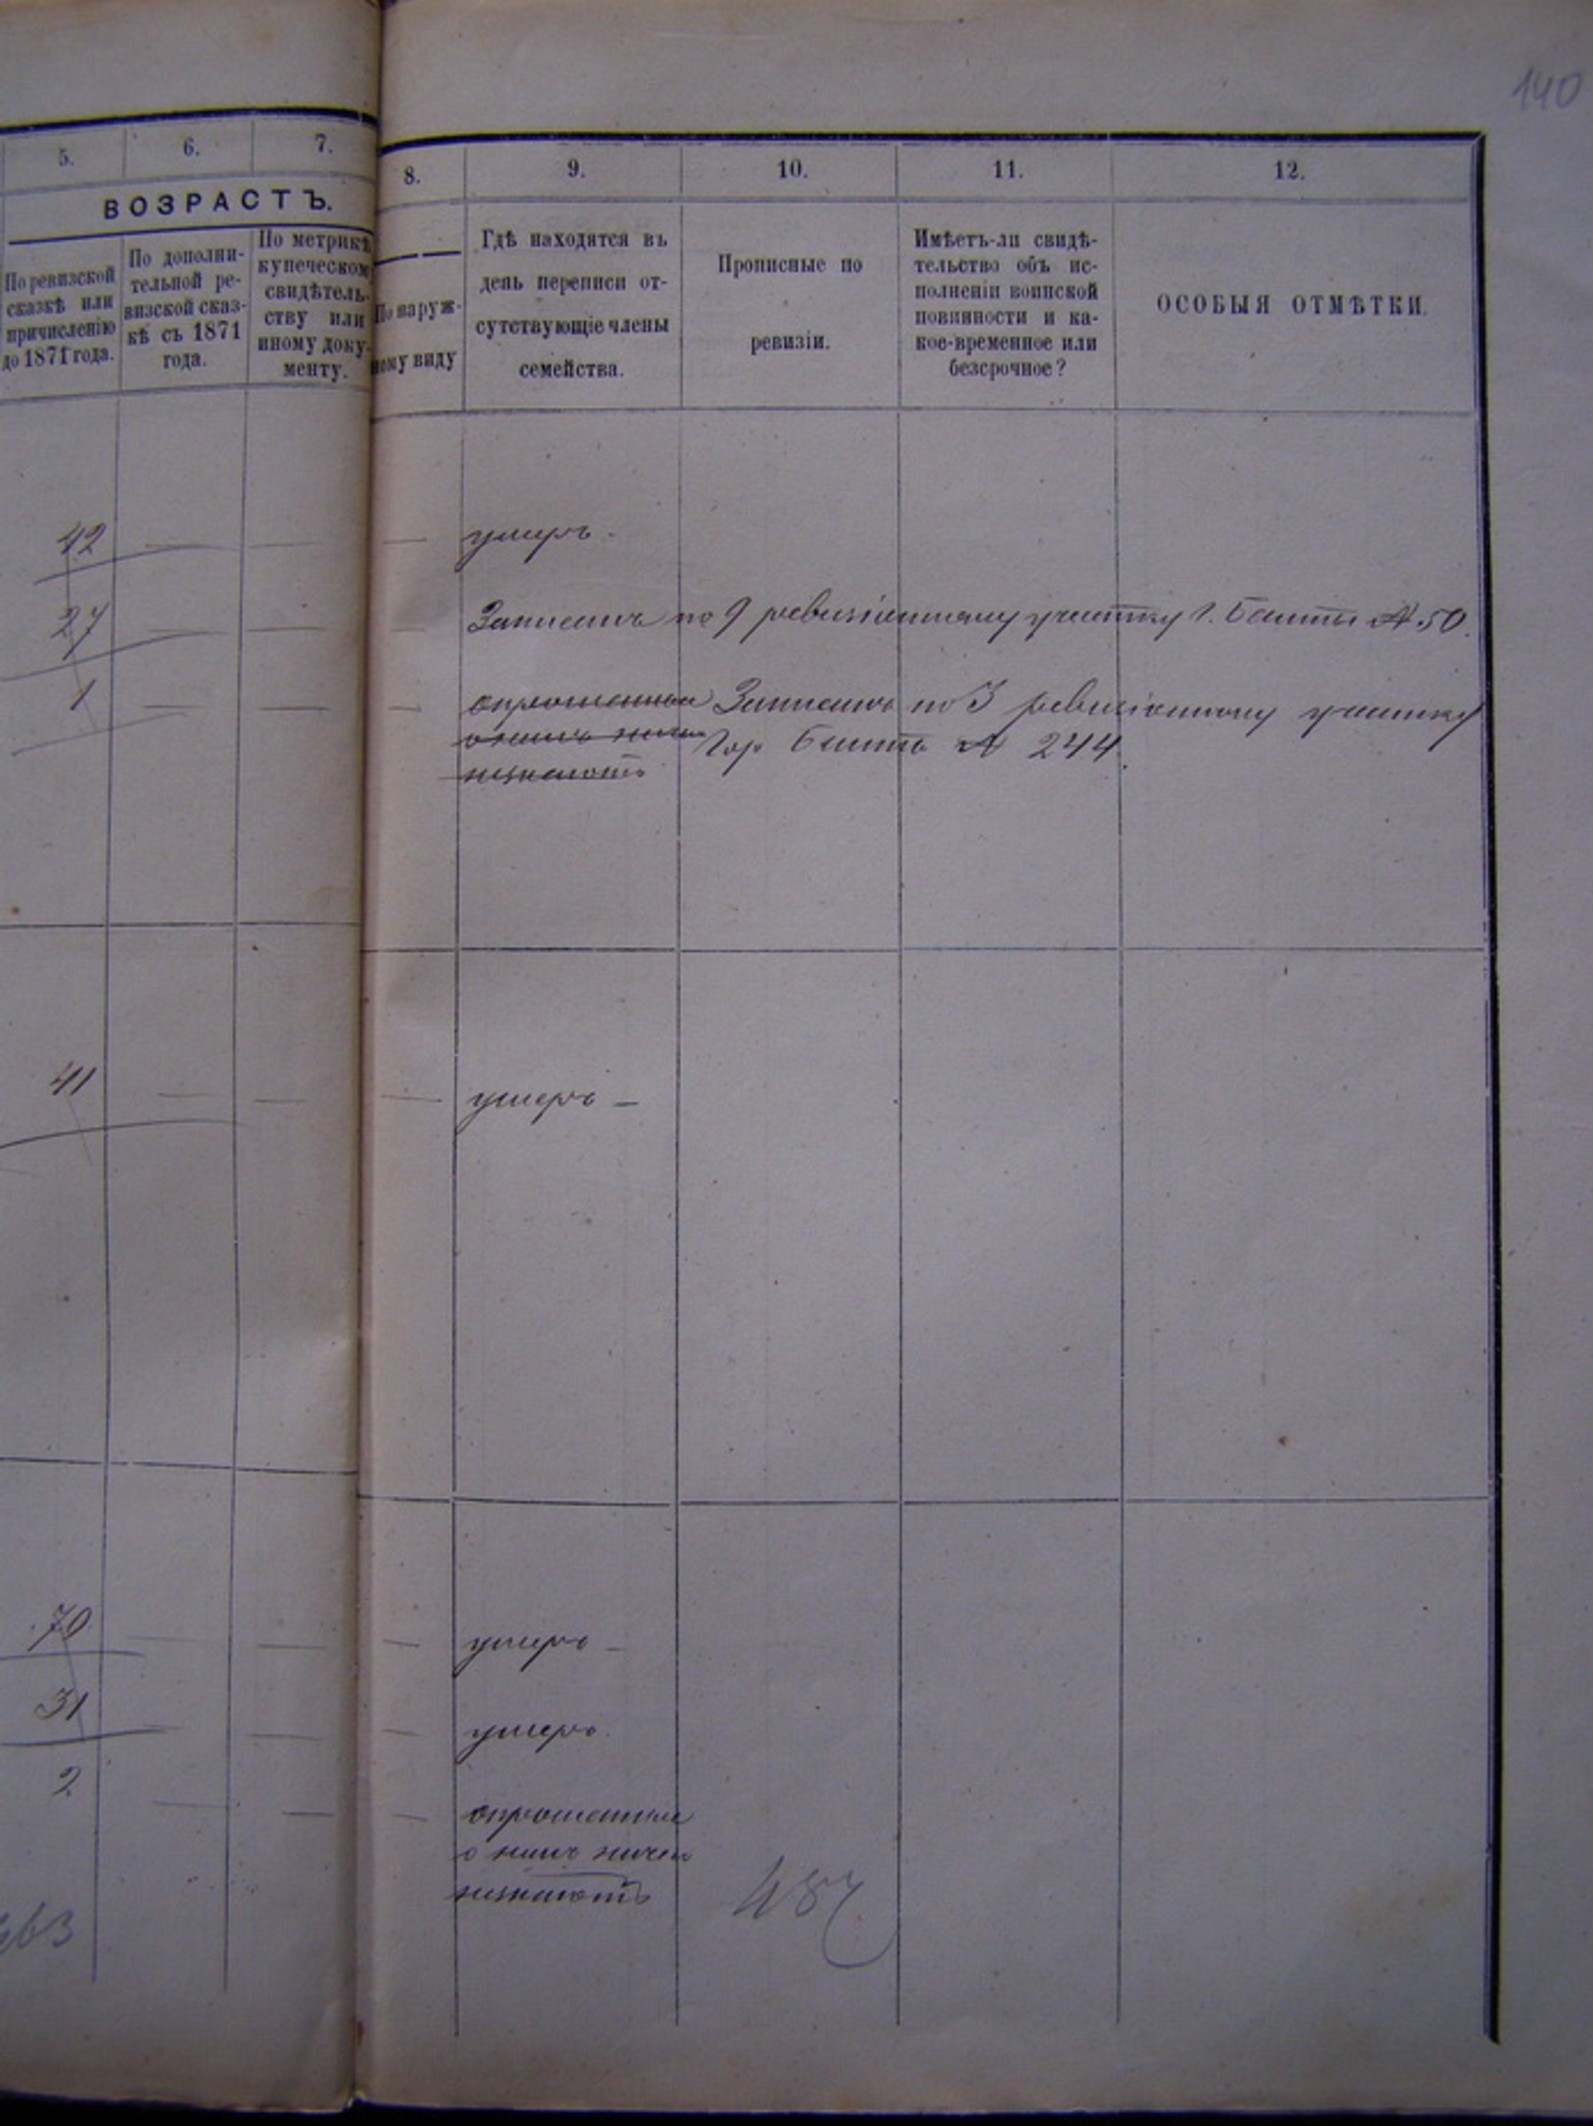 140
5.
6.
7.
8.
9.
10.
11.
12.
ВОЗРАСТЪ.
По ревизской
сказкѣ или
причисленію
до 1871 года.
По дополни-
тельной ре-
визской сказ-
кѣ съ 1871
года.
По метрикѣ,
купеческому
свидѣтель-
ству или
иному доку-
менту.
По наруж-
ному виду
Гдѣ находятся въ
день переписи от-
сутствующіе члены
семейства.
Прописные по
ревизіи.
Имѣетъ-ли свидѣ-
тельство объ ис-
полненіи воинской
повинности и ка-
кое-временное или
безсрочное?
ОСОБЫЯ ОТМѢТКИ.
42 — — — умеръ.
27 — — — Записанъ по 9 ревизіонному участку г. №50.
1 — — — опрошенныя Записанъ по 3 ревизіонному участку
о немъ ниче гор № 244.
незнаютъ
41 — — — умеръ —
70 — — — умеръ —
31 — — — умеръ.
2 — — — опрошенные
о немъ ничего
незнаютъ